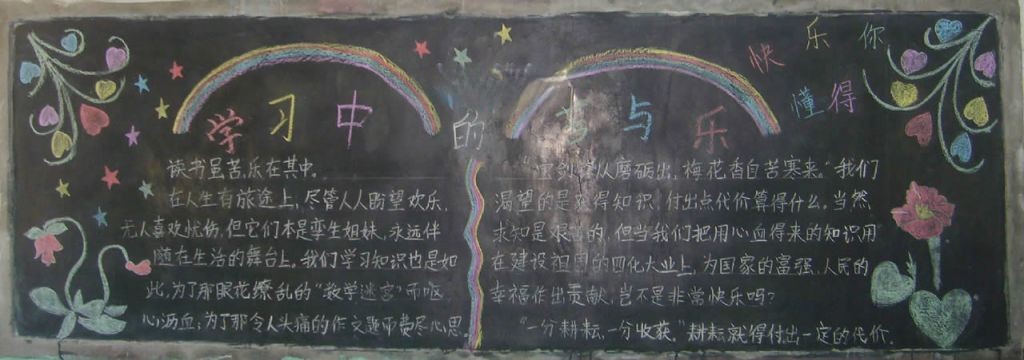 快乐你
懂得
学习中的苦与乐
读书虽苦,乐在其中。
在人生有旅途上,尽管人人盼望欢乐,
无人喜欢忧伤,但它们本是孪生姐妹,永远伴
随在生活的舞台上。我们学习知识也是如
此,为了那眼花缭乱的“数学迷宫”而呕
心沥血;为了那令人头痛的作文题而费尽心思
“宝剑锋从磨砺出,梅花香自苦寒来。”我们
渴望的是获得知识,付出点代价算得什么,当然
求知是艰苦的,但当我们把用心血得来的知识用
在建设祖国的四化大业上,为国家的富强、人民的
幸福作出贡献,岂不是非常快乐吗?
“一分耕耘,一分收获。”耕耘就得付出一定的代价.